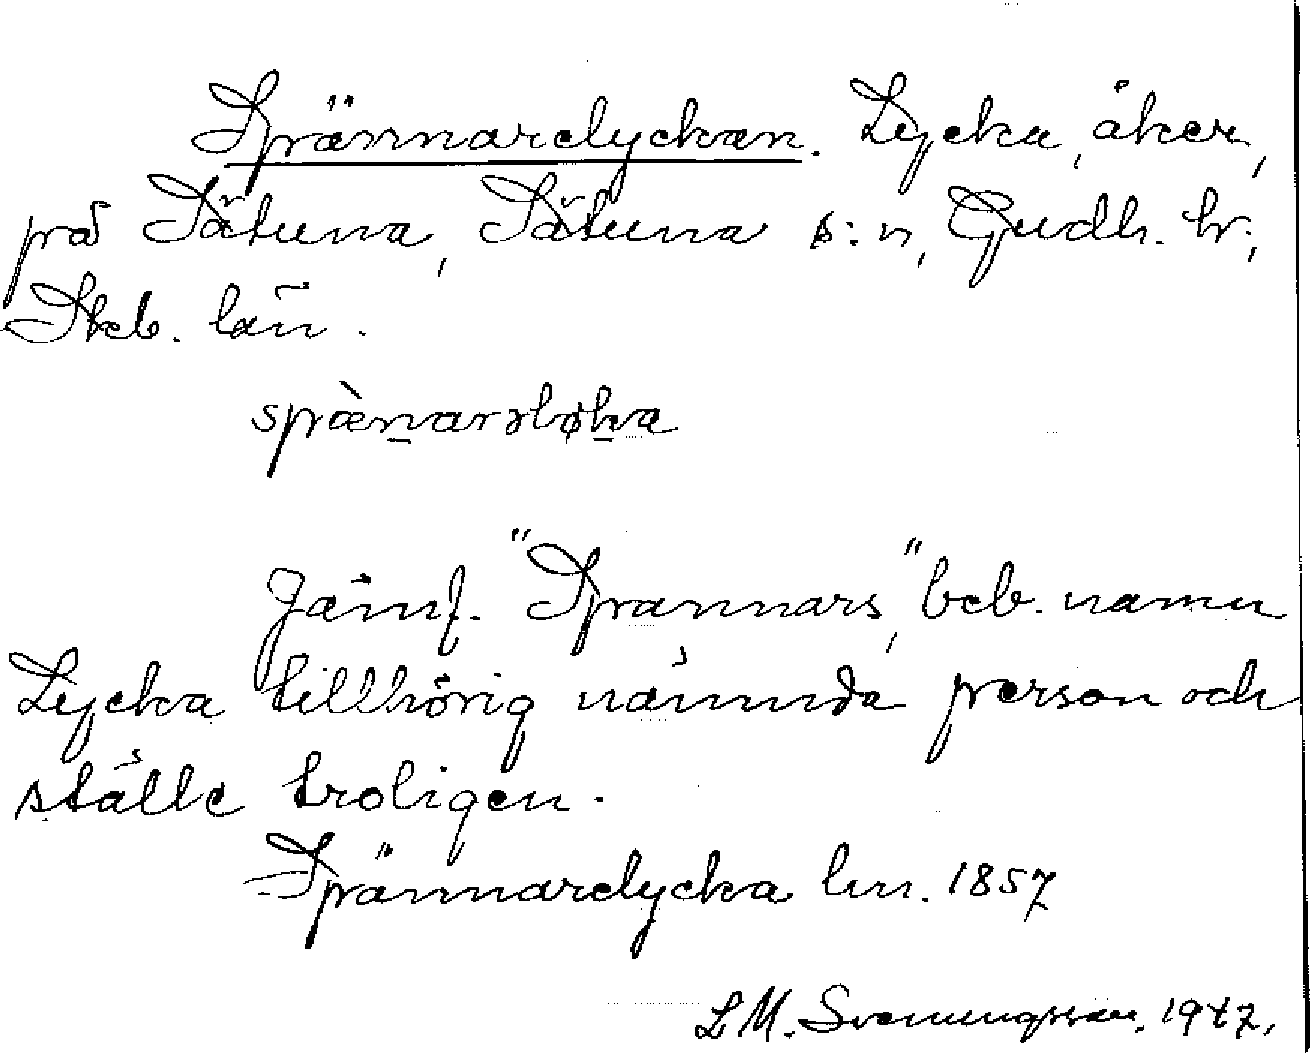 Spännarelyckan. Lycka, åker,
på Sätuna, Sätuna s:n, Gudh. hr;
Skb. län.
spæ̀narəløka
Jämf. "Spannars," beb. namn
Lycka tillhörig nämnda person och
ställe troligen.
Spännarelycka lm. 1857
L M. Svenungsson. 1947.